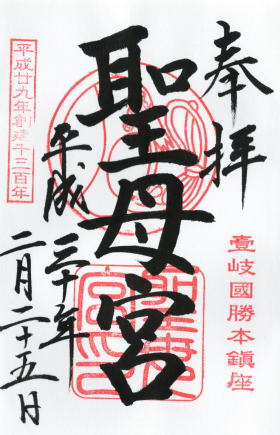 奉拝
壹岐國勝本鎮座
聖母宮
平成三十年
二月二十五日
平成廿九年創建千三百年